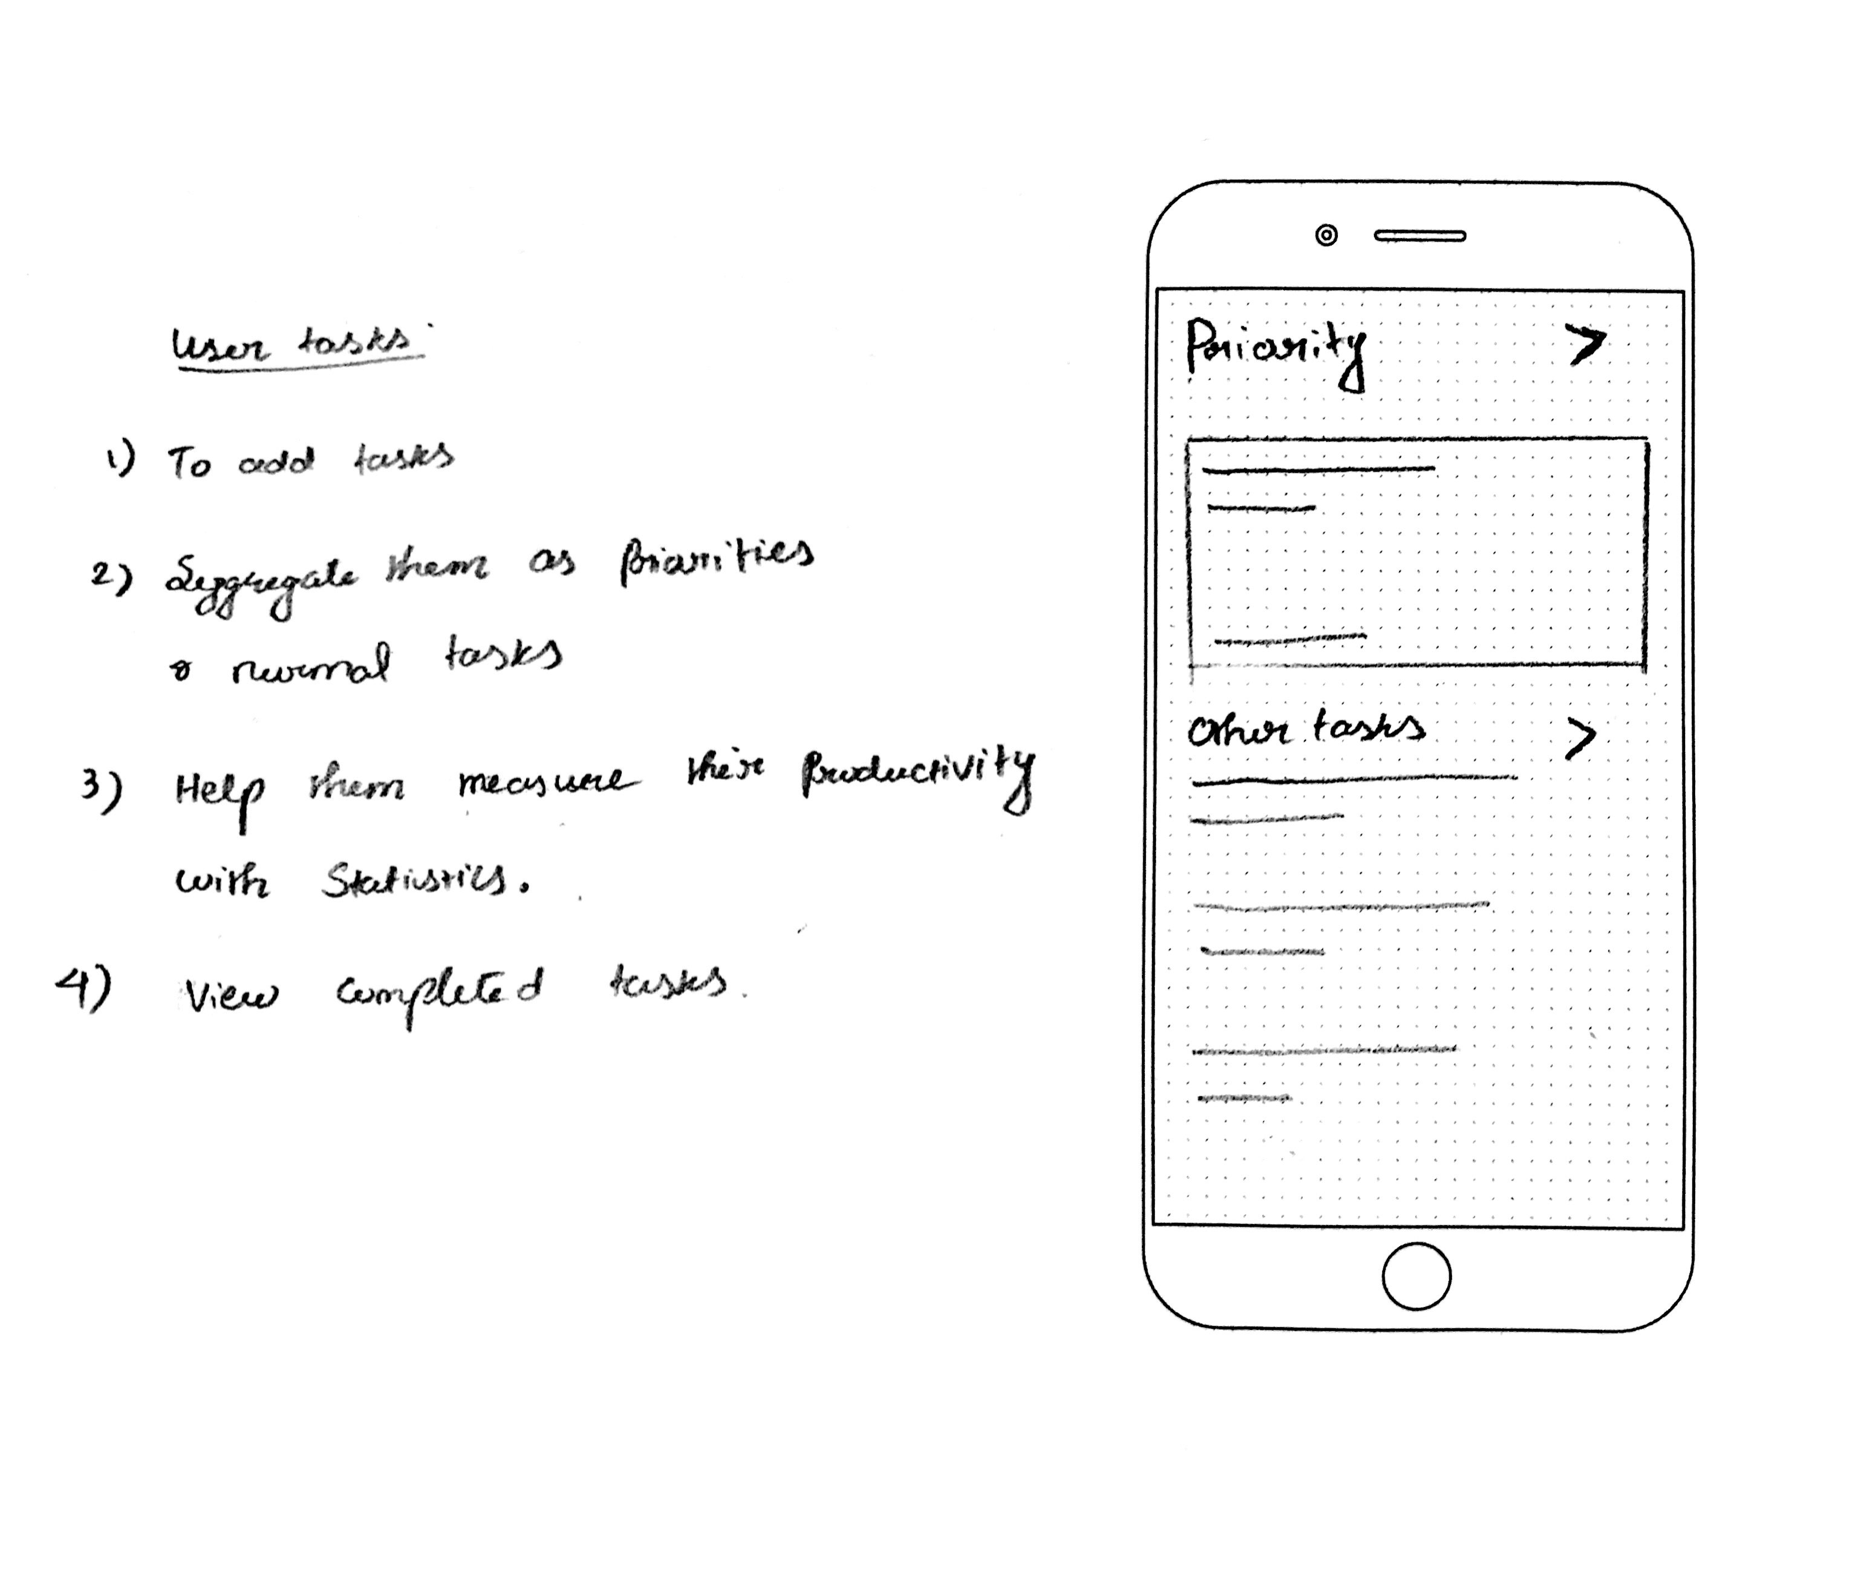 User tasks:
1) To add tasks
2) Seggregate them as Priorities
& normal tasks
3) Help them measure their Productivity
with Statistics.
4) View completed tasks.
Priority >
Other tasks >